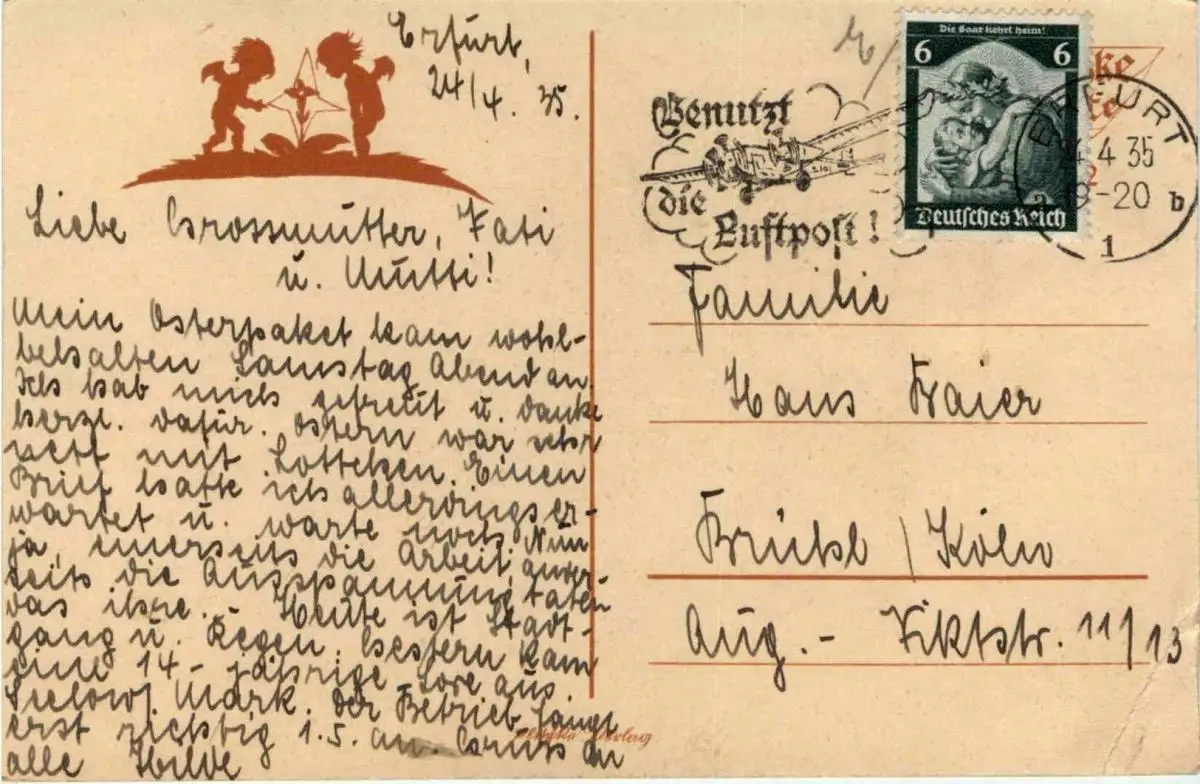 Erfurt,
24/4. 35.
Liebe Grossmutter, Vati
u. Mutti!
Mein Osterpaket kam wohl-
behalten Samstag Abend an.
Ich hab mich gefreut u. danke
herzl. dafür. Ostern war sehr
nett mit Lottchen. Einen
Brief hatte ich allerdings er-
wartet u. warte noch. Nun
ja, einerseits die Arbeit, ander-
seits die Ausspannung taten
das ihre. Heute ist Stadt-
gang u. Regen. Gestern kam
eine 14-jährige Lore aus
Seelow/Mark. Der Betrieb fängt
erst richtig 1.5. an. Gruss an
alle Hilde
Die Saar kehrt heim!
6 6
Deutsches Reich
Benutzt
die
Luftpost!
ERFURT
4.4 35
-20
b
1
Familie
Hans Baier
Brühl / Köln
Aug.- Viktstr. 11/13